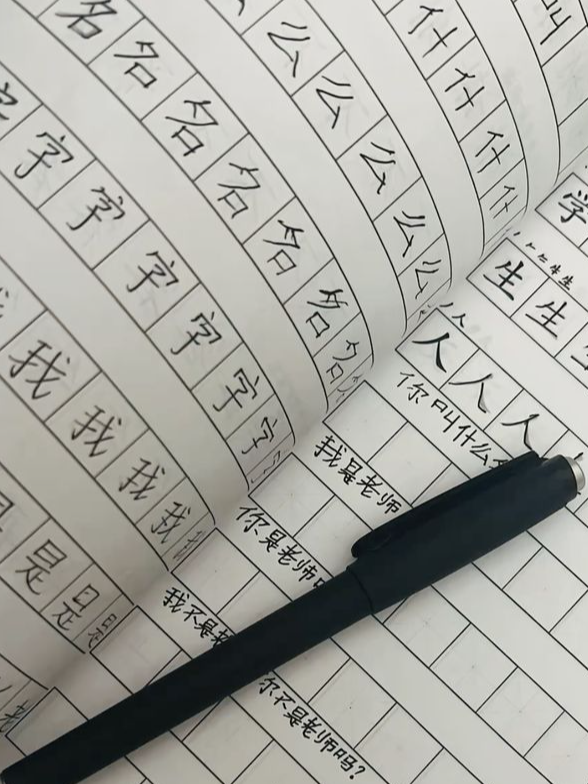 叫
什 什 什 什
么 么 么 么 么
名 名 名 名 名 名 名
字 字 字 字 字 字
我 我 我 我
是 是 是
老
学
生 生
人 人 人
你叫什么
我是老师
你是老师
我不是老
你不是老师吗?